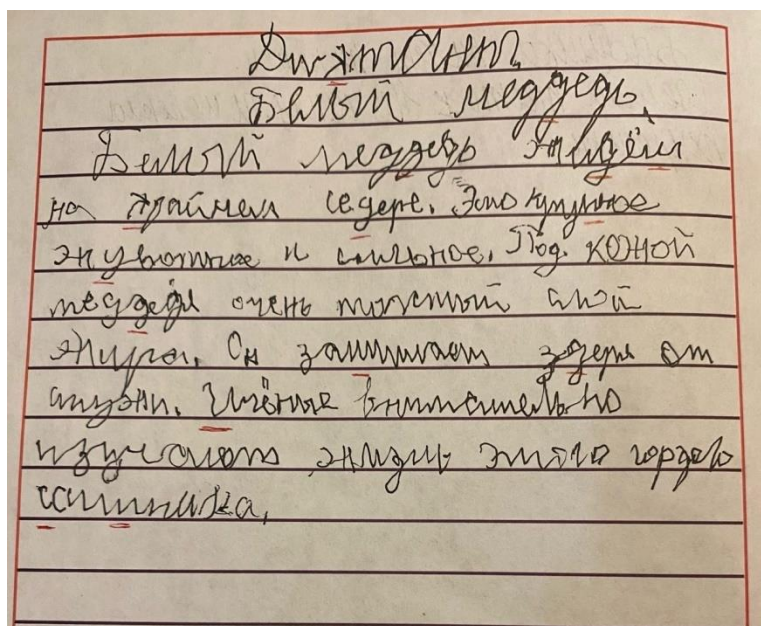 Диктант.
Белый меддедь.
Белый меддедь жидёт
на крайнем седере. Это крупное
жувотное и сильное. Под кожой
меддедя очень толстый слой
жира. Он защищает здеря от
стужи. Учёные внимательно
изучают жизнь этого гордого
хищника.